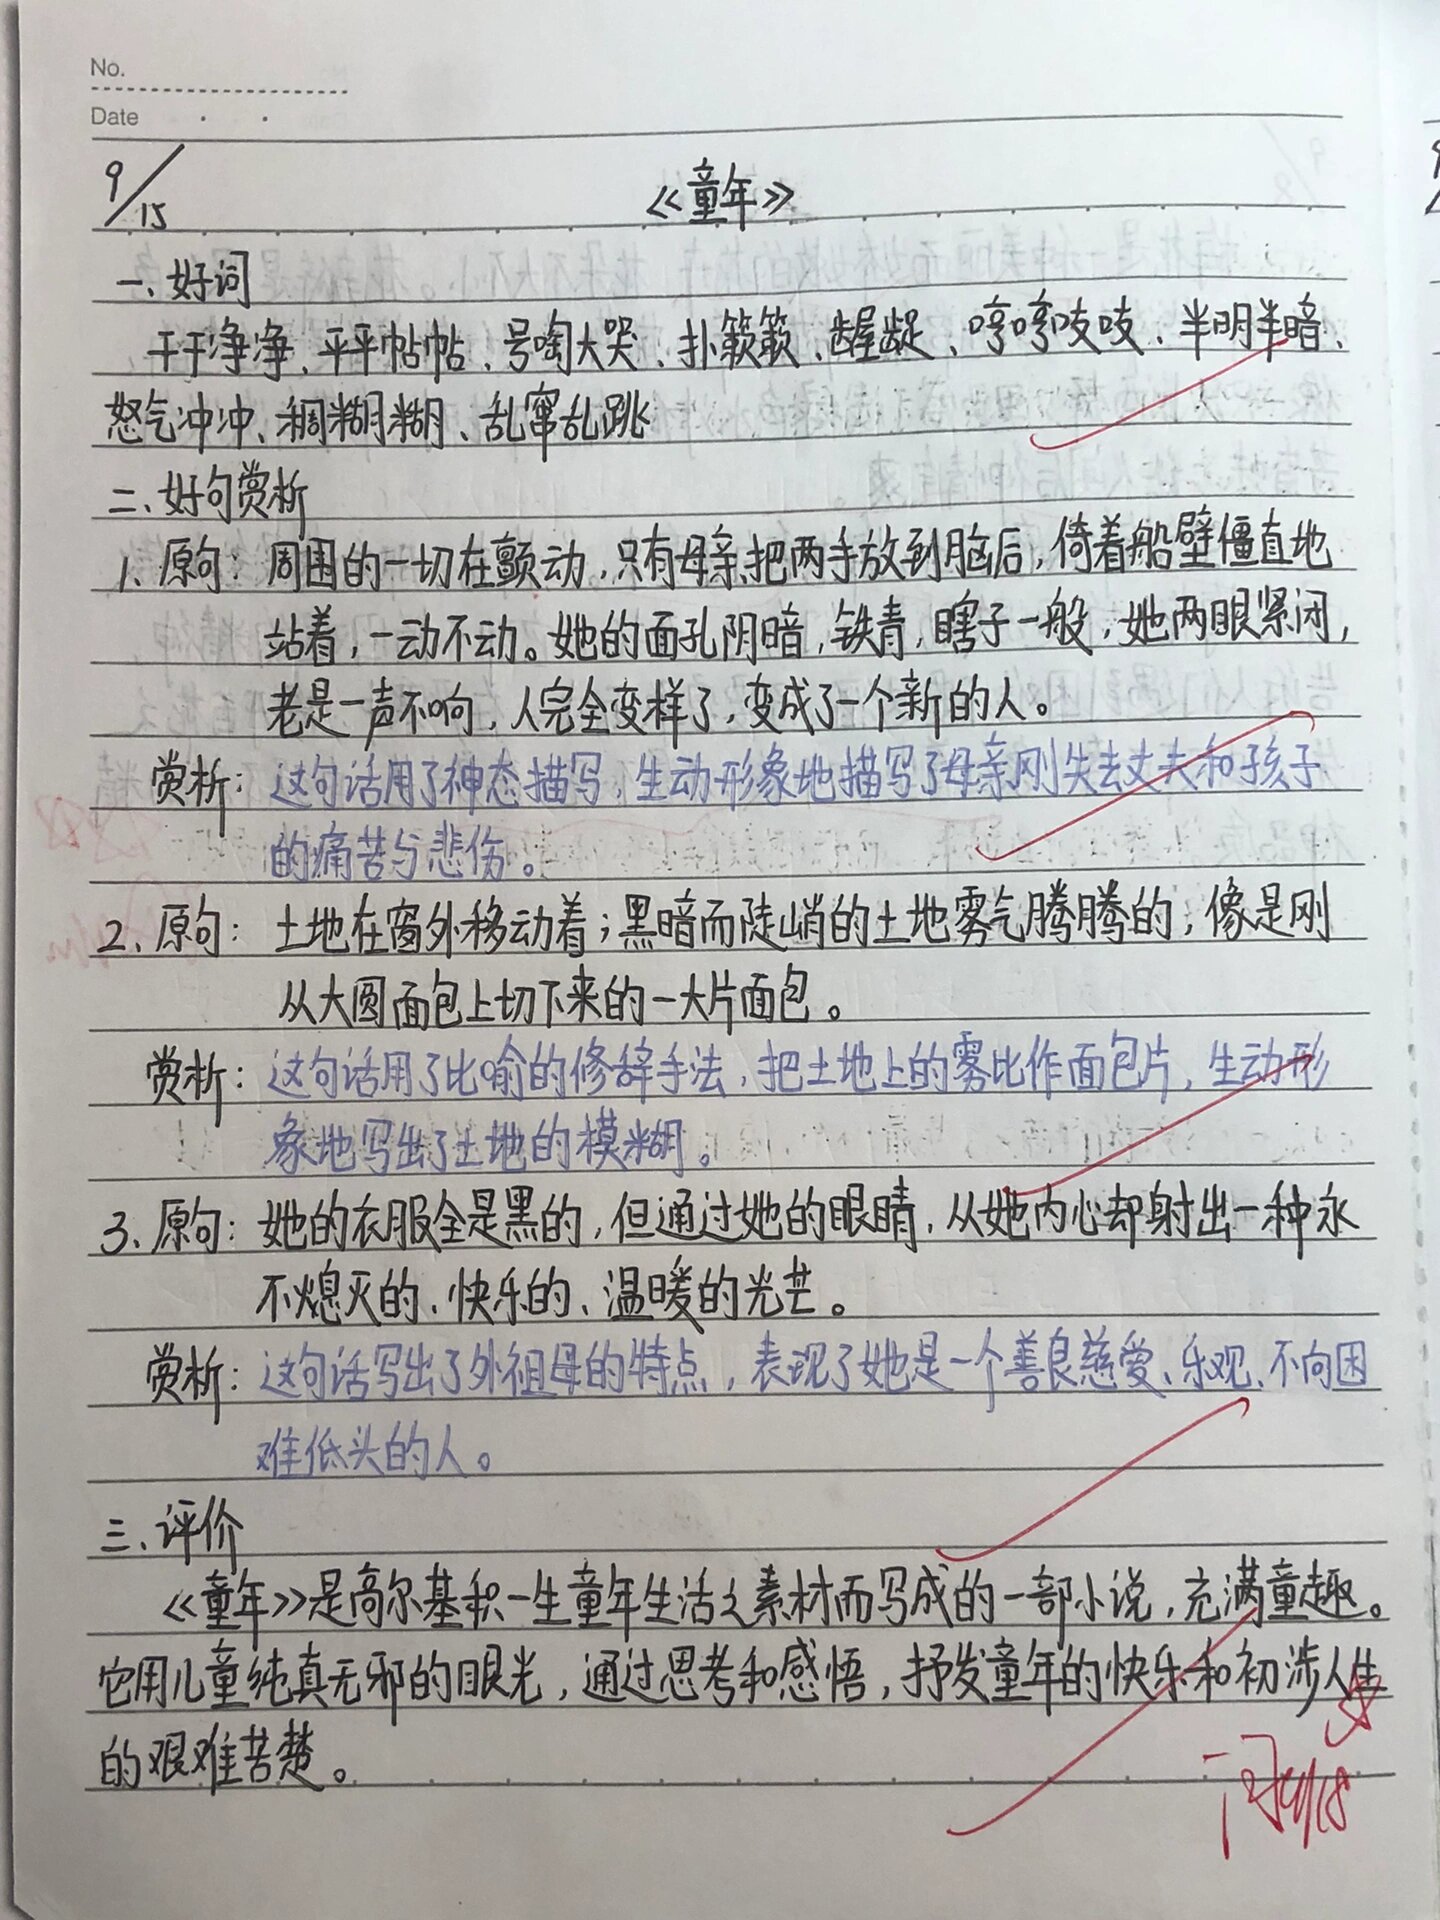 No.
Date
9/15
《童年》
一、好词
干干净净、平平帖帖、号啕大哭、扑簌簌、龌龊、哼哼吱吱、半明半暗、
怒气冲冲、稠糊糊、乱窜乱跳
二、好句赏析
1、原句：周围的一切在颤动，只有母亲把两手放到脑后，倚着船壁僵直地
站着，一动不动。她的面孔阴暗，铁青，瞎子一般，她两眼紧闭，
老是一声不响，人完全变样了，变成了一个新的人。
赏析：这句话用了神态描写，生动形象地描写了母亲刚失去丈夫和孩子
的痛苦与悲伤。
2、原句：土地在窗外移动着；黑暗而陡峭的土地雾气腾腾的，像是刚
从大圆面包上切下来的一大片面包。
赏析：这句话用了比喻的修辞手法，把土地上的雾比作面包片，生动形
象地写出了土地的模糊。
3、原句：她的衣服全是黑的，但通过她的眼睛，从她内心却射出一种永
不熄灭的、快乐的、温暖的光芒。
赏析：这句话写出了外祖母的特点，表现了她是一个善良慈爱、乐观、不向困
难低头的人。
三、评价
《童年》是高尔基积一生童年生活之素材而写成的一部小说，充满童趣。
它用儿童纯真无邪的眼光，通过思考和感悟，抒发童年的快乐和初涉人生
的艰难苦楚。